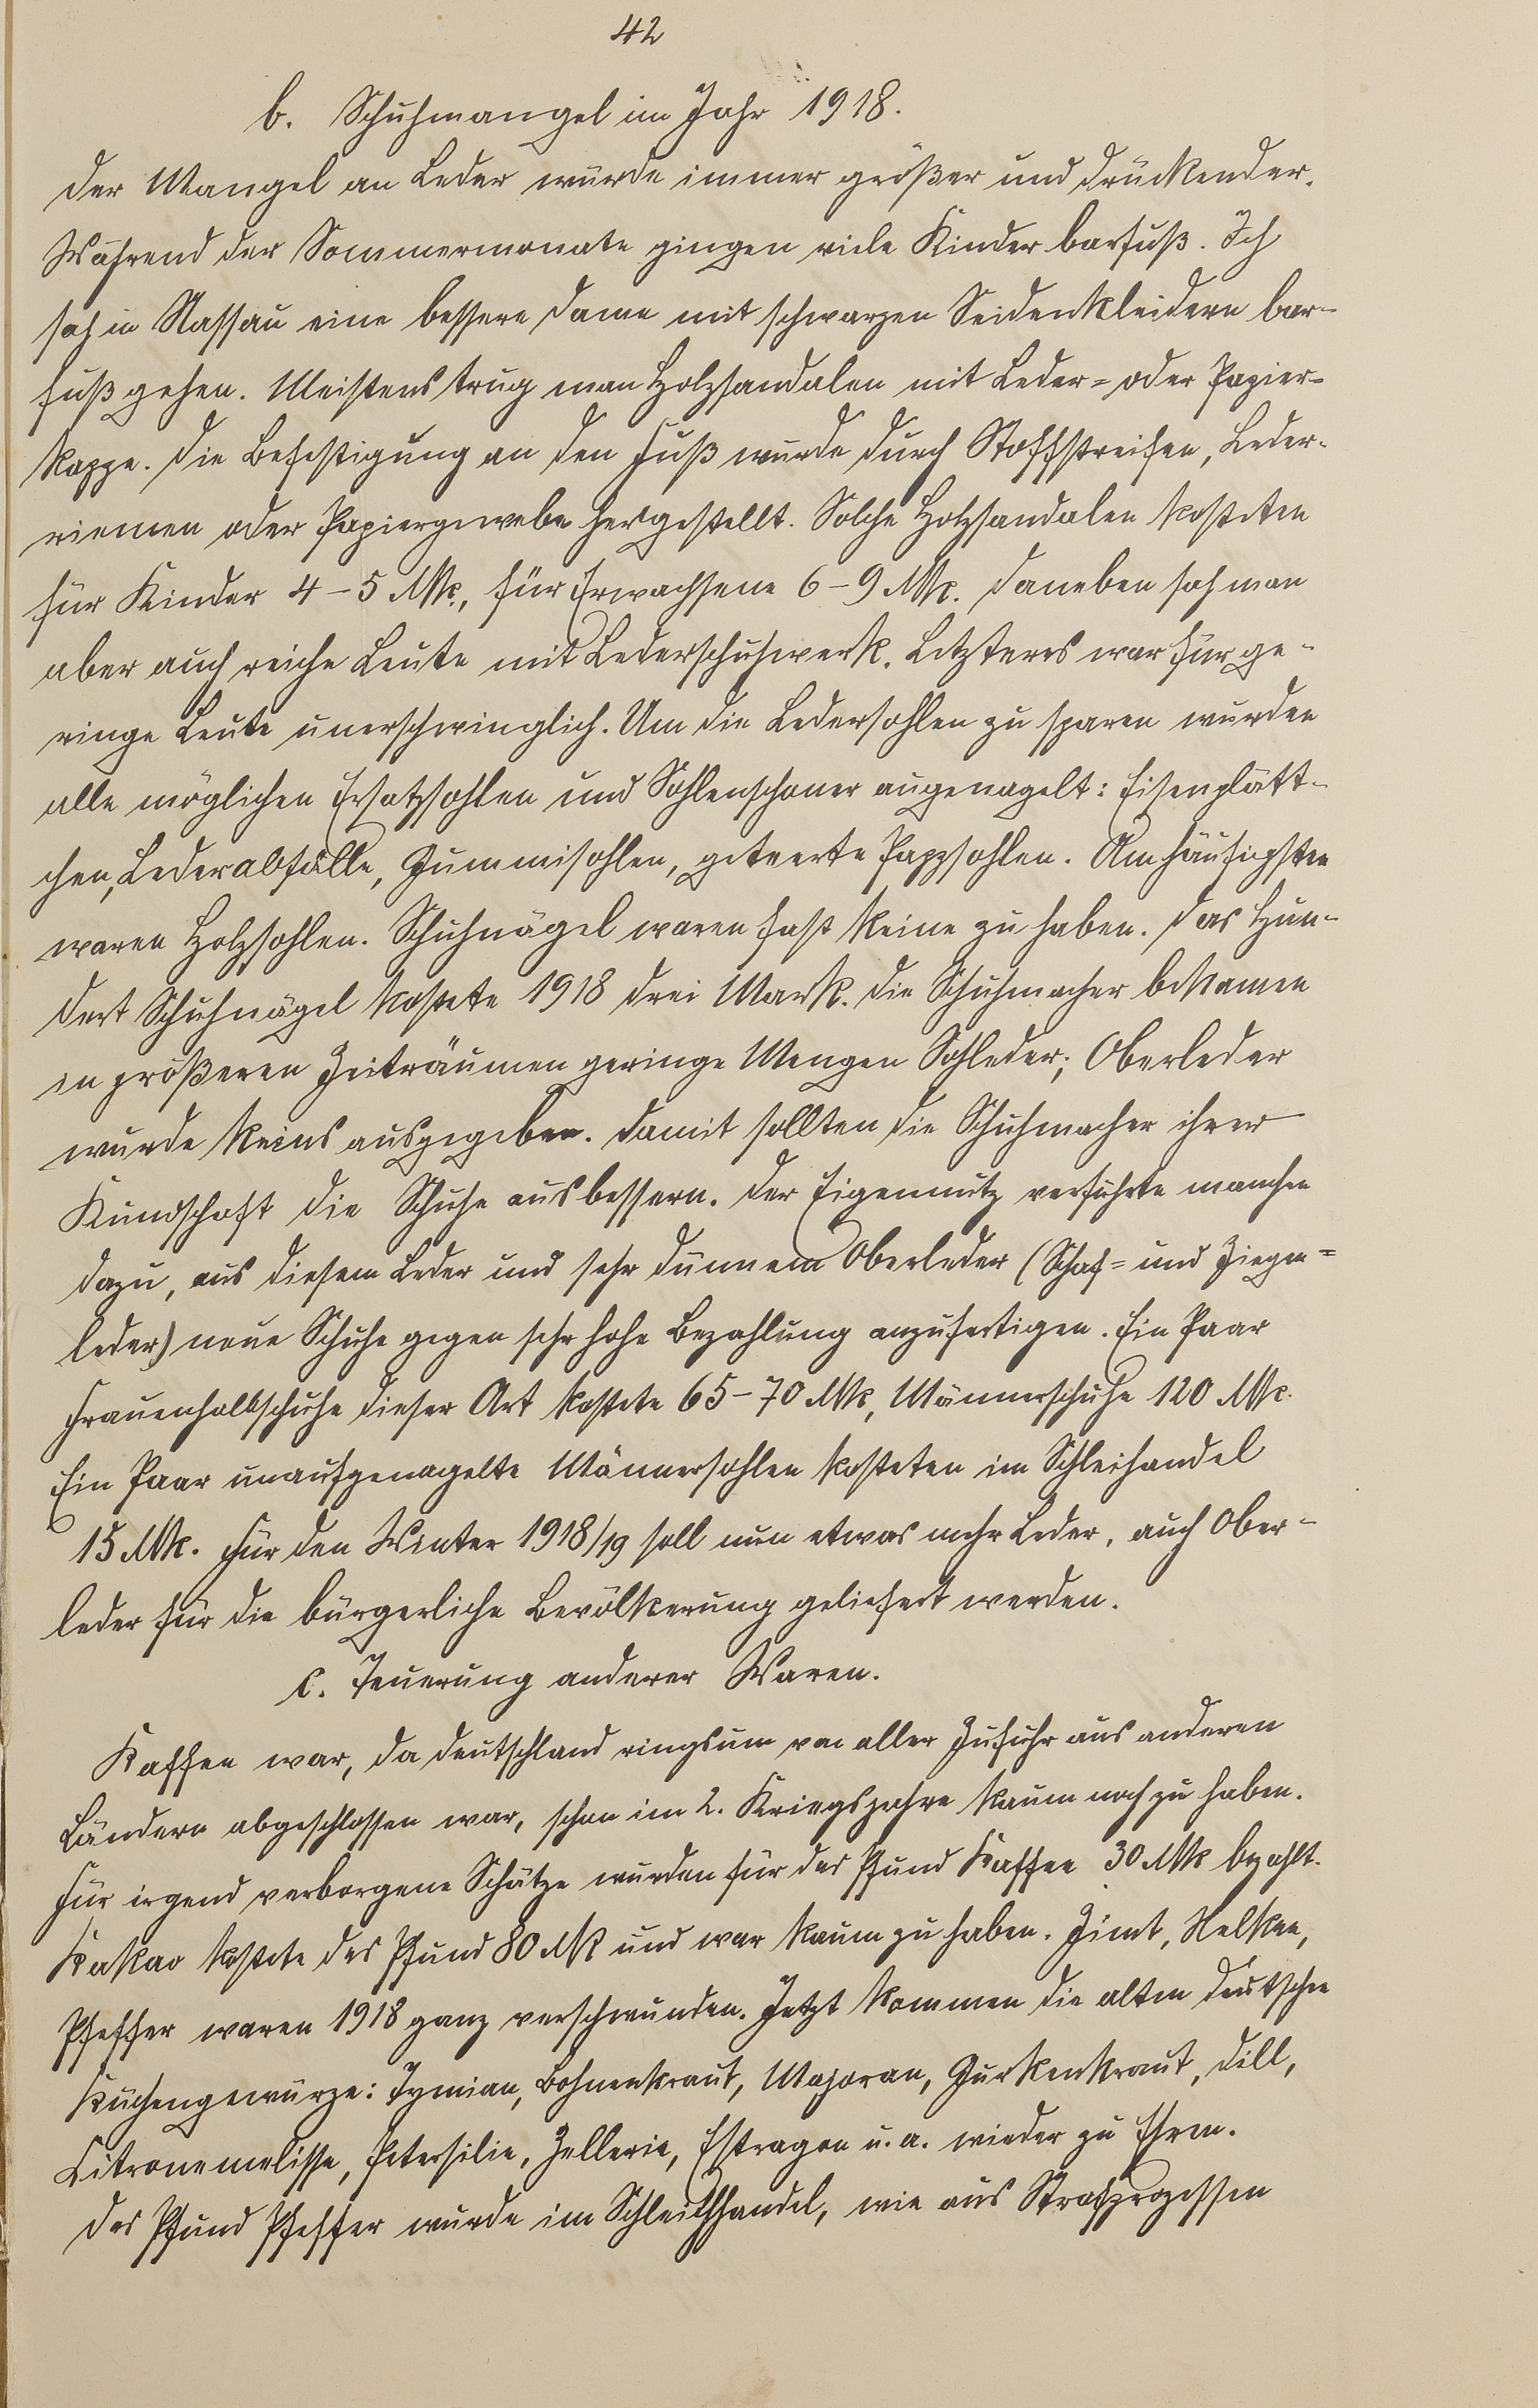 42
b. Schuhmangel im Jahr 1918.
Der Mangel an Leder wurde immer größer und drückender.
Während der Sommermonate gingen viele Kinder barfuß. Ich
sah in Nassau eine bessere Dame mit schwarzen Seidenkleidern bar-
fuß gehen. Meistens trug man Holzsandalen mit Leder= oder Papier-
kappe. Die Befestigung an den Fuß wurde durch Stoffstreifen, Leder-
riemen oder Papiergewebe hergestellt. Solche Holzsandalen kosteten
für Kinder 4–5 Mk., für Erwachsene 6–9 Mk. Daneben sah man
aber auch reiche Leute mit Lederschuhwerk. Letzteres war für ge-
ringe Leute unerschwinglich. Um die Ledersohlen zu sparen wurden
alle möglichen Ersatzsohlen und Sohlenschoner aufgenagelt: Eisenplätt-
chen, Lederabfälle, Gummisohlen, geteerte Pappsohlen. Am häufigsten
waren Holzsohlen. Schuhnägel waren fast keine zu haben. Das Hun-
dert Schuhnägel kostete 1918 drei Mark. Die Schuhmacher bekamen
in größeren Zeiträumen geringe Mengen Sohleder; Oberleder
wurde keins ausgegeben. Damit sollten die Schuhmacher ihrer
Kundschaft die Schuhe ausbessern. Der Eigennutz verführte manchen
dazu, aus diesem Leder und sehr dünnem Oberleder (Schaf= und Ziegen=
leder) neue Schuhe gegen sehr hohe Bezahlung anzufertigen. Ein Paar
Frauenhalbschuhe dieser Art kostete 65–70 Mk, Männerschuhe 120 Mk.
Ein Paar unaufgenagelte Männersohlen kosteten im Schleihandel
15 Mk. Für den Winter 1918/19 soll nun etwas mehr Leder, auch Ober-
leder für die bürgerliche Bevölkerung geliefert werden.
c. Teuerung anderer Waren.
Kaffee war, da Deutschland ringsum von aller Zufuhr aus anderen
Ländern abgeschlossen war, schon im 2. Kriegsjahre kaum noch zu haben.
Für irgend verborgene Schätze wurden für das Pfund Kaffee 30 Mk bezahlt.
Kakao kostete das Pfund 80 Mk und war kaum zu haben. Zimt, Nelken,
Pfeffer waren 1918 ganz verschwunden. Jetzt kommen die alten deutschen
Küchengewürze: Tymian, Bohnenkraut, Majoran, Gurkenkraut, Dill,
Citronemelisse, Petersilie, Zellerie, Estragon u. a. wieder zu Ehren.
Das Pfund Pfeffer wurde im Schleichhandel, wie aus Strafprozessen